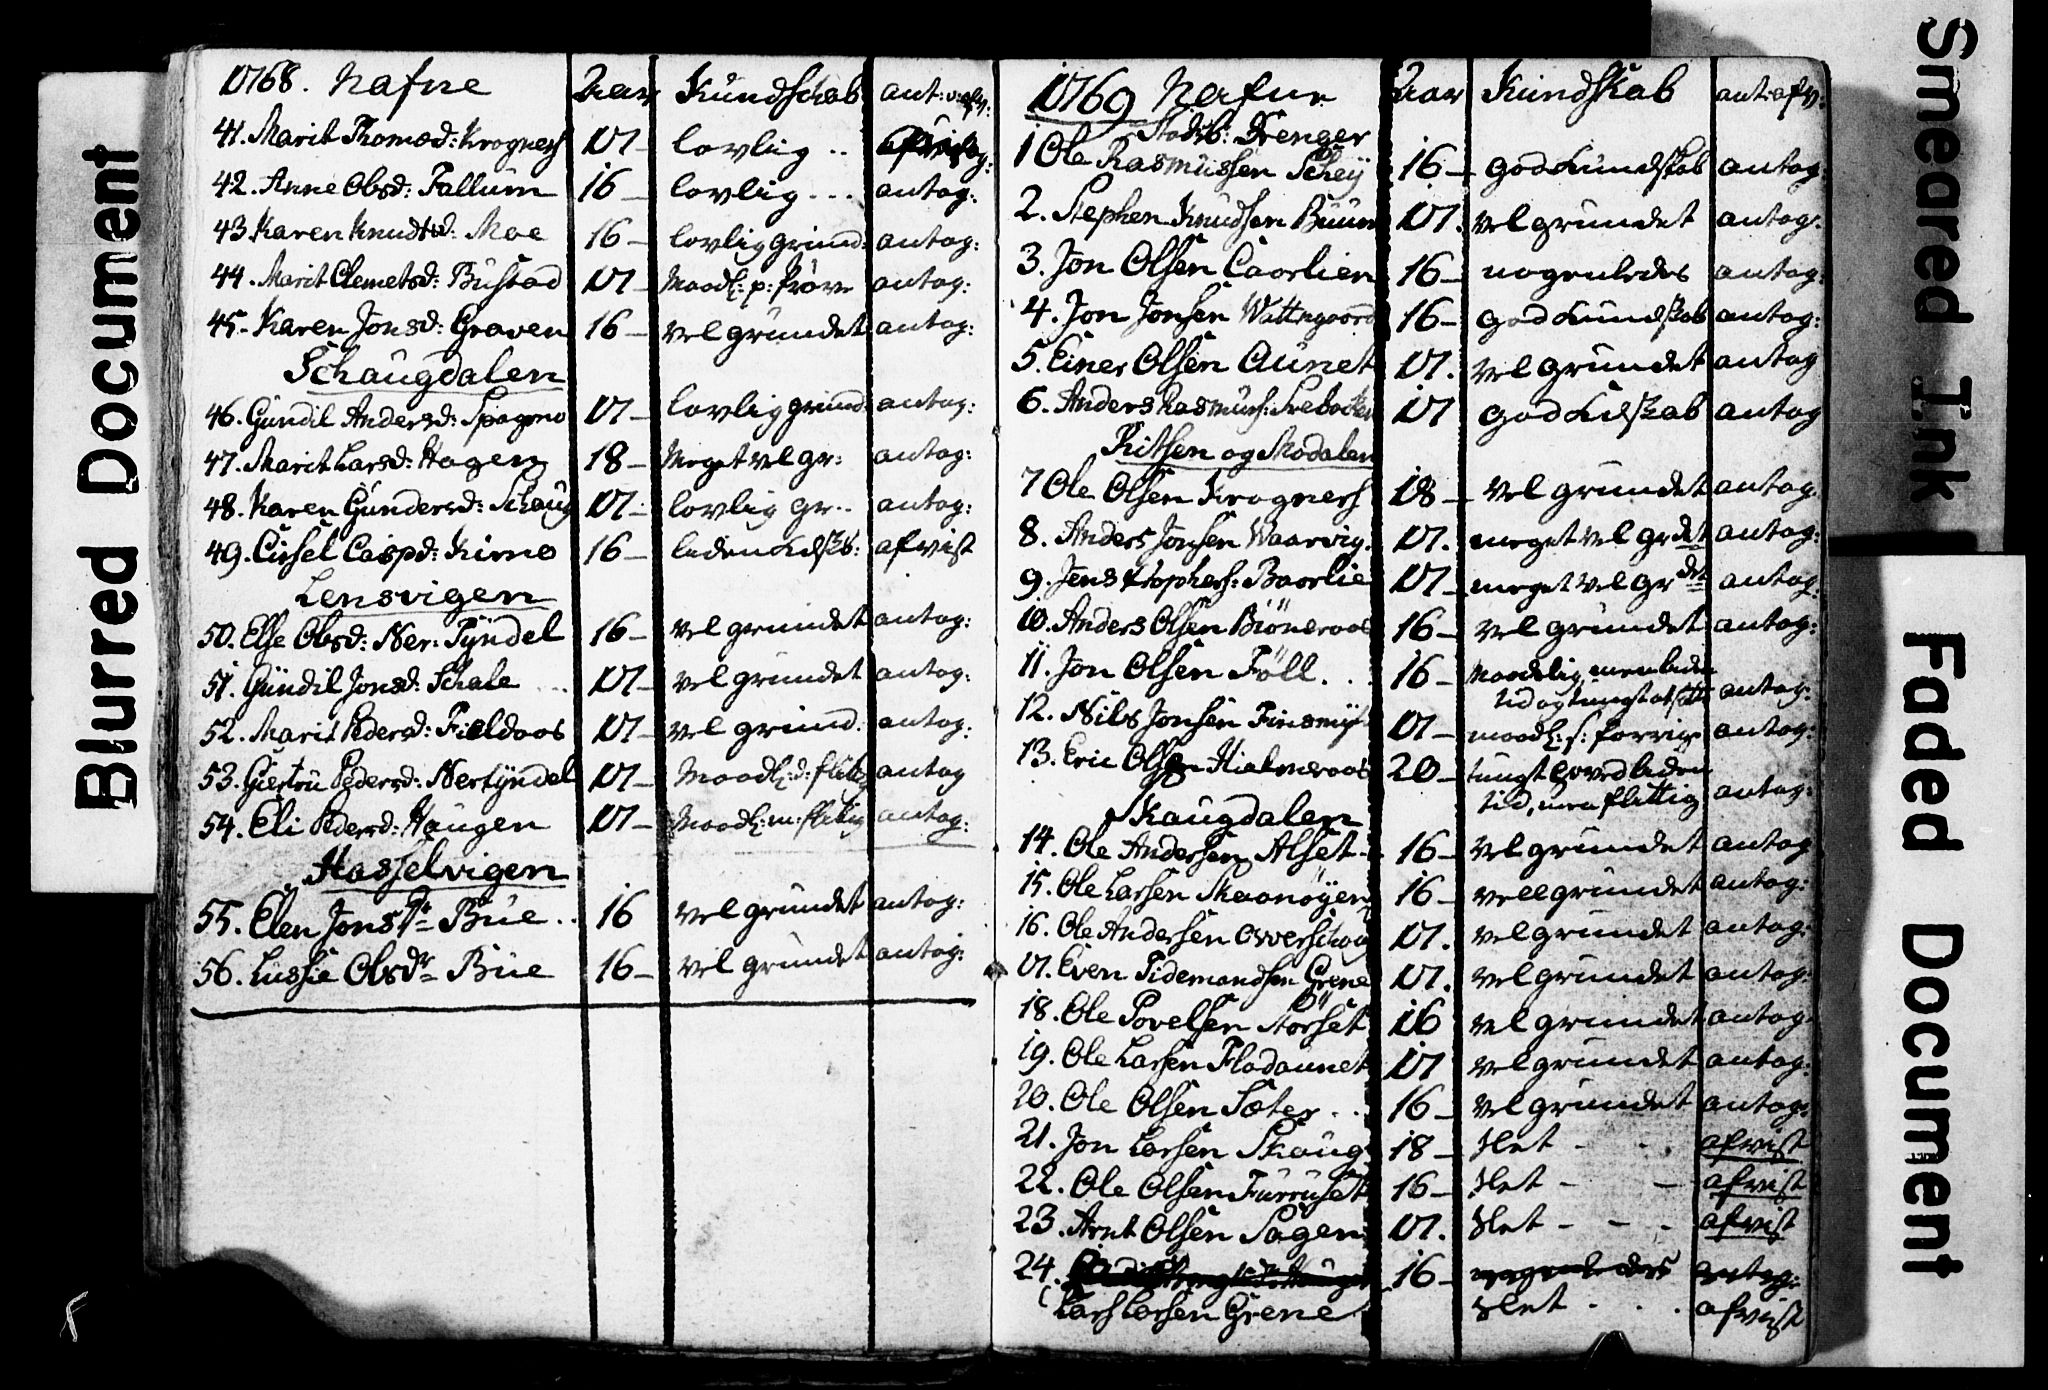 Blurred Document
1768. Nafne Aar Kundschab ant: u: afv:
41. Marit Thomæd: Krogness 17 lovlig .. antag:
42. Anne Olsd: Fallum 16 lovlig ... antag:
43 Karen Knudtsd: Moe 16 lovlig grund: antag:
44. Marit Clemetsd: Bustad 17 Maadl: p: Prøve antag:
45. Karen Jonsd: Graven 16 vel grundet antag:
Schaugdalen
46. Gundil Andersd: Spagmo 17 lovlig grund: antag:
47. Marit Larsd: Hagen 18 Meget vel gr: antag:
48. Karen Gundersd: Schaug 17 lovlig gr.. antag:
49. Cissel Caspd: Kirne 16 liden Kdskb: afvist
Lensvigen
50. Else Olsd: Ner: Tÿndel 16 vel grundet antag:
51. Gundil Jonsd: Schale ... 17 vel grundet antag:
52. Marit Pedersd: Fieldaas 17 vel grund: antag:
53. Giertru Pedersd: Nertÿndel 17 Maadl: d: flitig antag
54. Eli Pedersd: Haugen 17 Maadl: m: flitig antag:
Hasselvigen
55. Elen Jons Dr Büe .. 16 vel grundet antag:
56. Lussie Ols Dr Büe 16 vel grundet antag:
1769 Nafne Aar Kundskab ant: afv:
Stadsb: Drenger
1 Ole Rasmussen Scheÿ 16 god Kundskab antag:
2. Stephen Knudsen Buum 17. vel grundet antag:
3. Jon Olsen Caarlien 16 nogenledes antag:
4. Jon Jonsen Wattngaard 16 god Kundskab antag:
5. Einer Olsen Aunet 17. vel grundet antag
6. Anders Rasmuss: 17 god Kdskab antag
Ritsen og Modalen
7 Ole Olsen Krogness 18 vel grundet antag:
8. Anders Jonsen Waarvig. 17. meget vel grdet antag:
9. Jens Baarlie 17 meget vel gr det antag:
10. Anders Olsen Biöneraas 16 vel grundet antag:
11. Jon Olsen Föll. .. 16 Maadelig, men liden
tid og tungt at antag:
12. Nils Jonsen Finsmÿr 17 maadl: f: forrige antag:
13. Eric Olsen Hielmeraas 20 tungt hoved liden
tid, men flittig antag:
Skaugdalen
14. Ole Andersen Alset 16 vel grundet antag
15. Ole Larsen Skaanöyen 16 vell grundet antag:
16. Ole Andersen Overschoug 17. vel grundet antag:
17. Even Tidemandsen Grene 17. vel grundet antag:
18. Ole Povelsen Störset 16 vel grundet antag:
19. Ole Larsen Fladaunet 17 vel grundet antag:
20. Ole Olsen Sæter ... 16 vel grundet antag:
21. Jon Larsen Skaug 18 slet - . afvist
22. Ole Olsen Furruset 16 slet - - afvist
23. Arnt Olsen Sagen 17. slet - - . afvist
24. 16 nogenledes antag:
Lars Larsen Grene slet - . . afvist
Smeared Ink
Faded Document